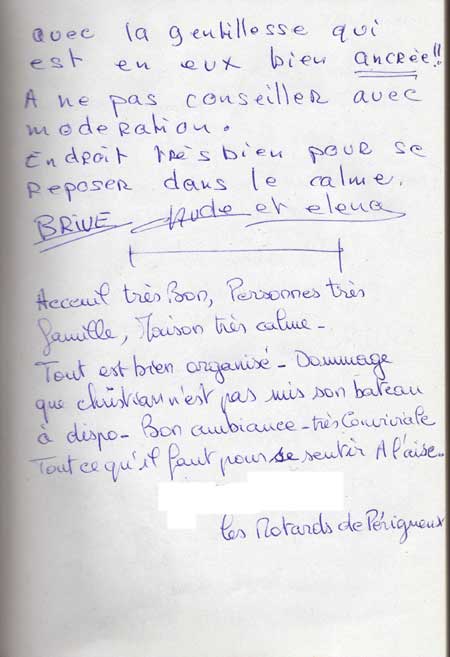 avec la gentillesse qui
est en eux bien ancrée!!
A ne pas conseiller avec
moderation.
Endroit très bien pour se
reposer dans le calme.
BRIVE Aude et elena
Acceuil très Bon, Personnes très
famille, Maison très calme -
Tout est bien organisé - Dommage
que christian n'est pas mis son bateau
à dispo - Bon ambiance - très Conviviale
Tout ce qu'il faut pour se sentir A l'aise..
Les Motards de Périgueux